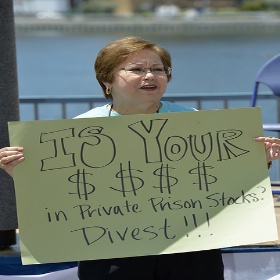 IS YOUR
$ $ $ $
in Private Prison Stocks?
Divest!!!